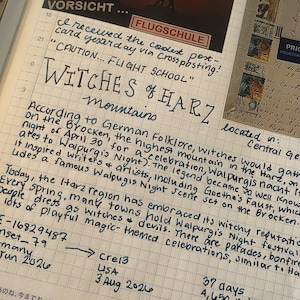 VORSICHT...
FLUGSCHULE
I received the coolest post-
card yesterday via Crossposting!
"CAUTION... FLIGHT SCHOOL"
WITCHES of HARZ
mountains
PRIO
Located in:
Central Ge
According to German folklore, witches would gath
on the Brocken, the highest mountain in the Harz, on
night of April 30 for a celebration, Walpurgisnacht
ates to Walpurgis Night). The legend became so well know
it inspired writers & artists, including Goethe's Faust which
ludes a famous Walpurgis Night scene set on the Brocken.
Today, the Harz region has embraced its witchy reputation
Every spring, many towns hold Walpurgis Night festival
people dress as witches & devils. There are parades, bonfir
lots of playful magic-themed celebrations, similar to Ha
E-16829457
nset_79
rmany
Jun 2026
creib
USA
3 Aug 2026
37 days